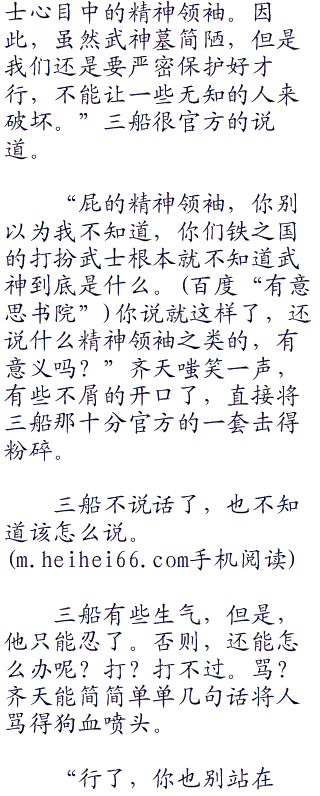 士心目中的精神领袖。因
此，虽然武神墓简陋，但是
我们还是要严密保护好才
行，不能让一些无知的人来
破坏。”三船很官方的说
道。
“屁的精神领袖，你别
以为我不知道，你们铁之国
的打扮武士根本就不知道武
神到底是什么。(百度“有意
思书院”)你说就这样了，还
说什么精神领袖之类的，有
意义吗？”齐天嗤笑一声，
有些不屑的开口了，直接将
三船那十分官方的一套击得
粉碎。
三船不说话了，也不知
道该怎么说。
(m.heihei66.com手机阅读)
三船有些生气，但是，
他只能忍了。否则，还能怎
么办呢？打？打不过。骂？
齐天能简简单单几句话将人
骂得狗血喷头。
“行了，你也别站在